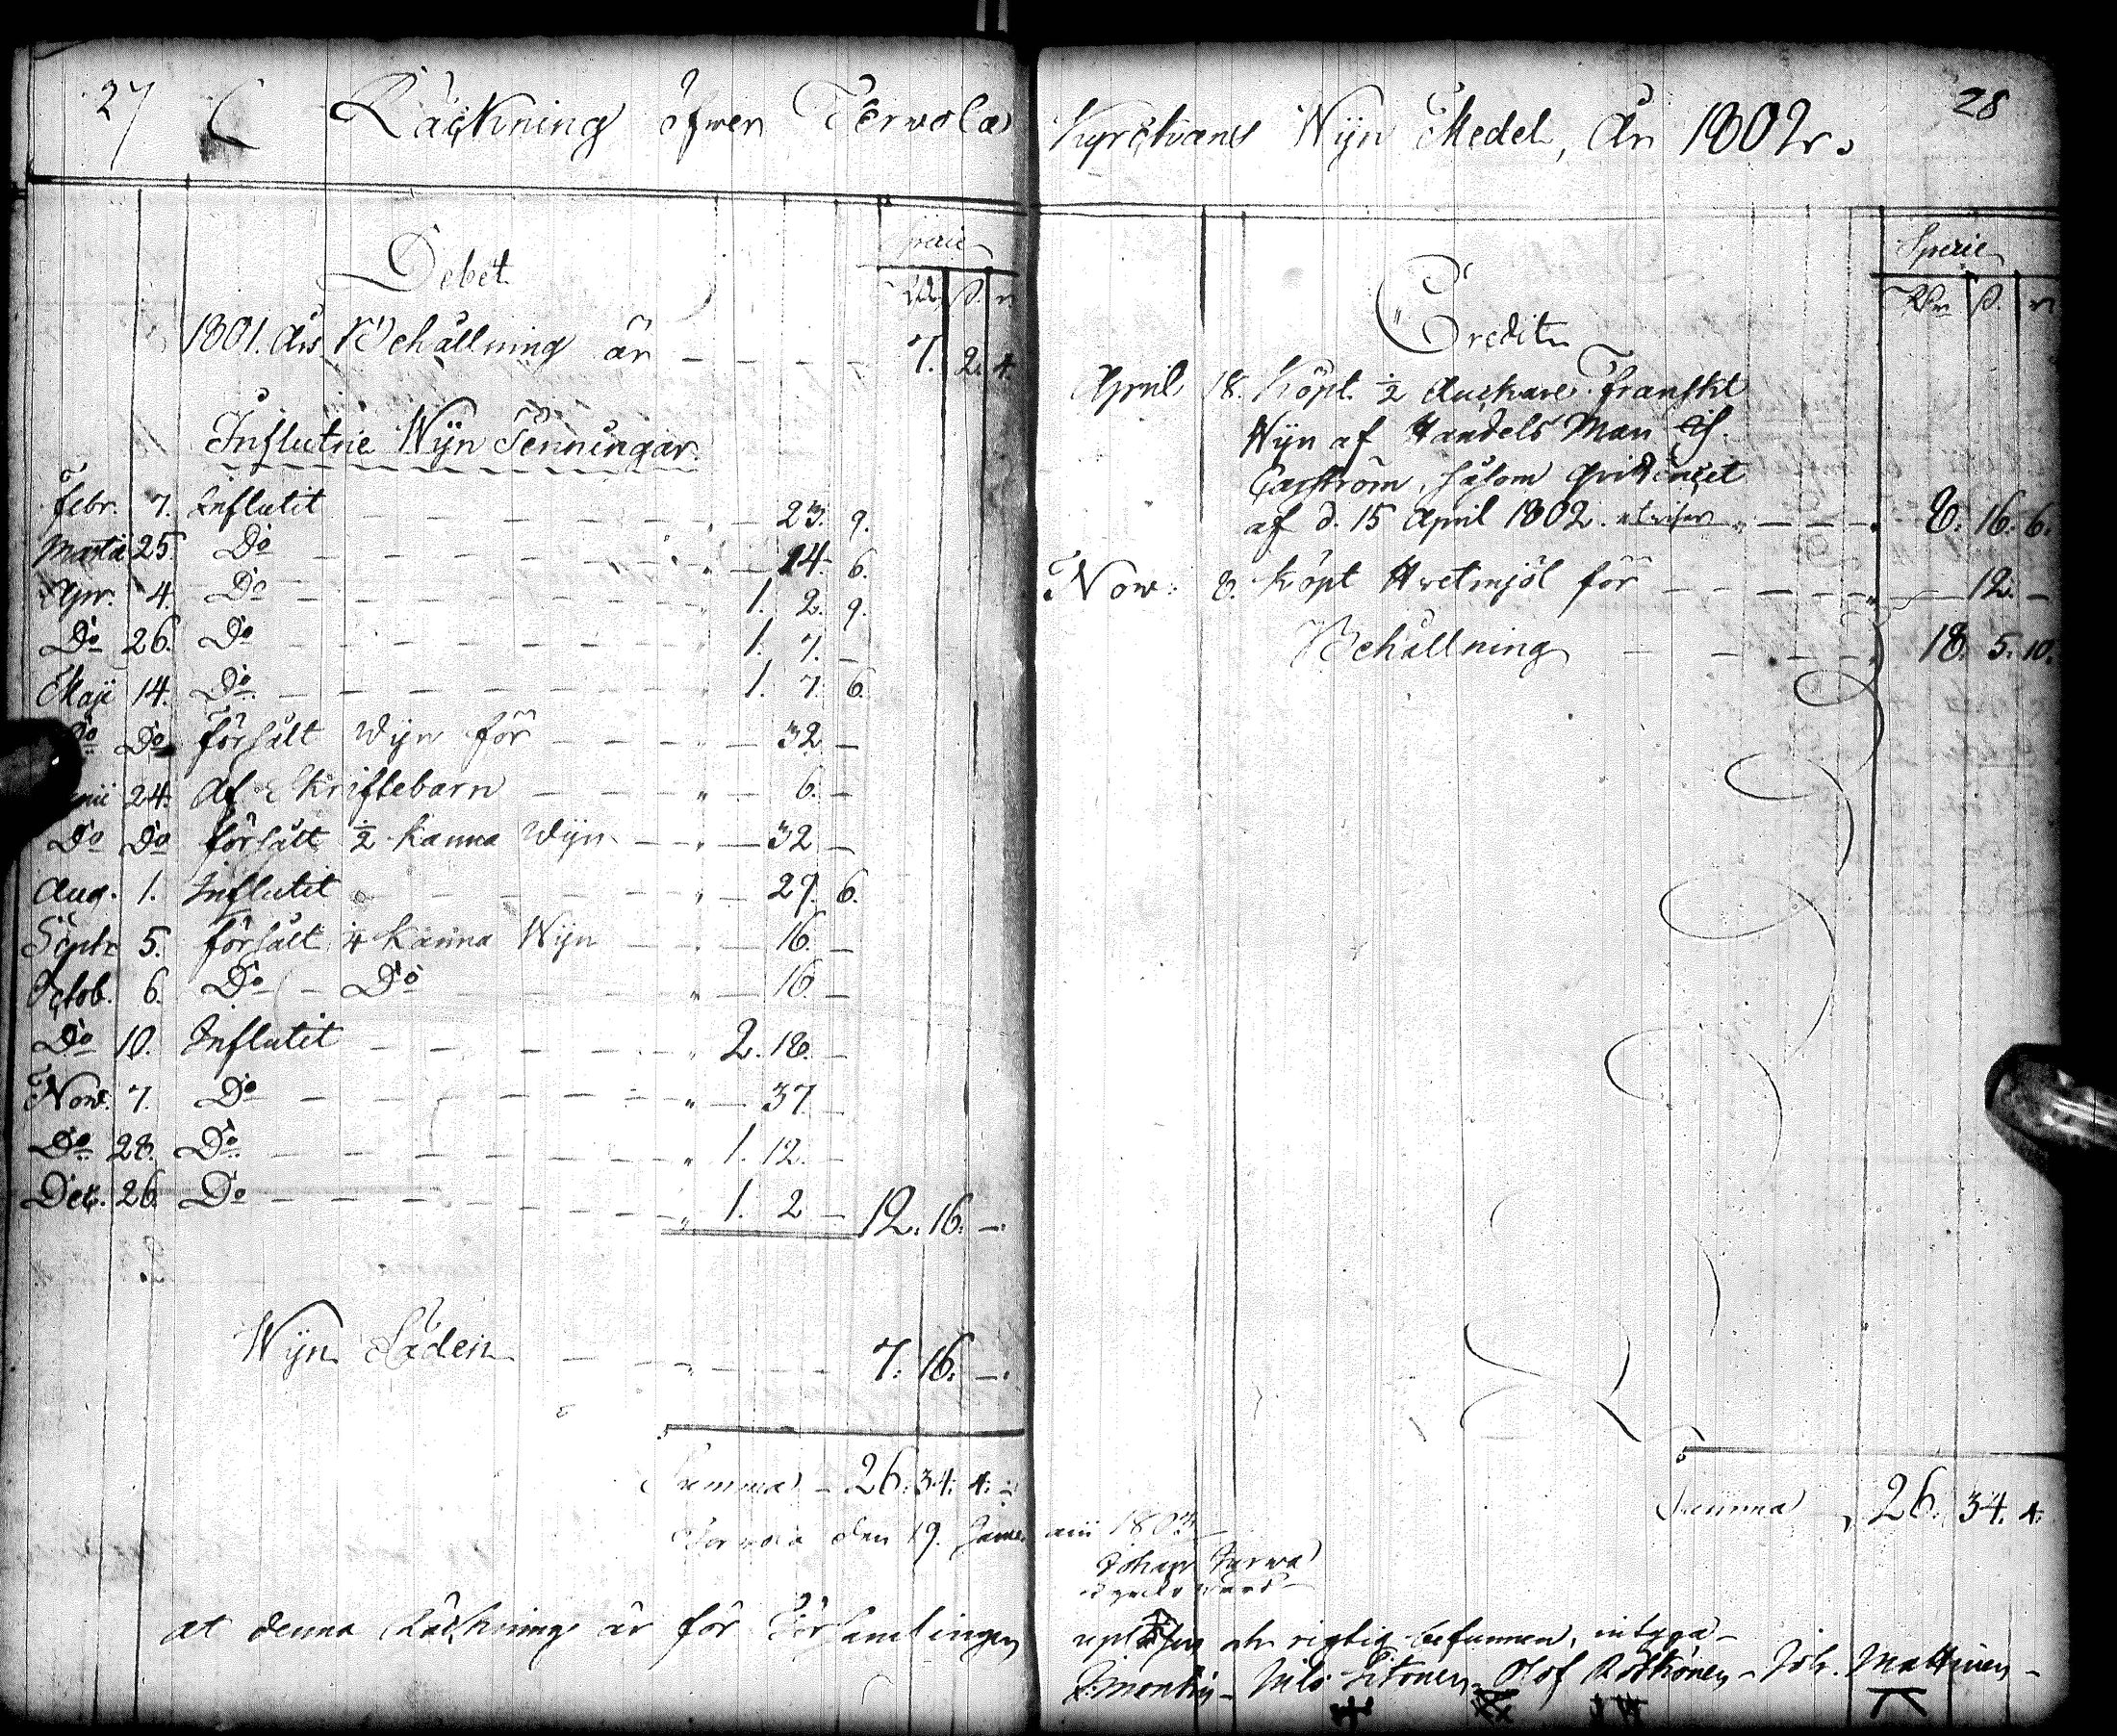 27 Räckning öfwer Terwola
Debet
Specie
Rd. ß. r.
1801. års Behållning är 7. 2. 4.
Influtne Wijn Penningar.
Febr. 7. Influtit 23. 9.
Martii 25. Do 14. 6.
Apr. 4. Do 1. 2. 9.
Do 26. Do 1. 7. –
Maji 14. Do 1. 7. 6.
Do Do försålt Wijn för 32 –
24. Af Skriftebarn 6. –
Do Do försålt ½ Kanna Wijn 32 –
Aug. 1. Influtit 27. 6.
Septr 5. försålt ¼ Kanna Wijn 16. –
Octob. 6. Do – Do 16. –
Do 10. Influtit 2. 18. –
Nov. 7. Do 37. –
Do 28. Do 1. 12. –
Dec. 26. Do 1. 2 – 12. 16. –
Wijn Säden 7. 16. –
Summa 26. 34. 4.
den 19. Janu
at denna Räckning är för Församlingen
Kyrckans Wijn Medel, År 1802. 28
Specie
Rdr ß. r
Credit
April 18. Köpt ½ Anckare Franskt
Wijn af Handels Man
såsom Qvittencet
af d. 15 April 1802. utviser 8. 16. 6.
Nov: 8. Köpt Hvetmjöl för 12. –
Behållning 18. 5. 10.
Summa 26. 34. 4.
arii 1803
Johan
upläsen och rigtig befunnen, intyga –
Nils Olof Joh. Mattinen –